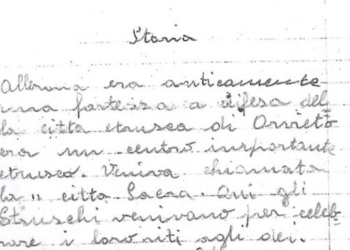 Storia
Allerona era anticamente
una fortezza a difesa del
la città etrusca di Orvieto
era un centro important
etrusco. Veniva chiamata
la „ città Sacra. Qui gli
Etruschi venivano per celeb
rare i loro riti agli dei.